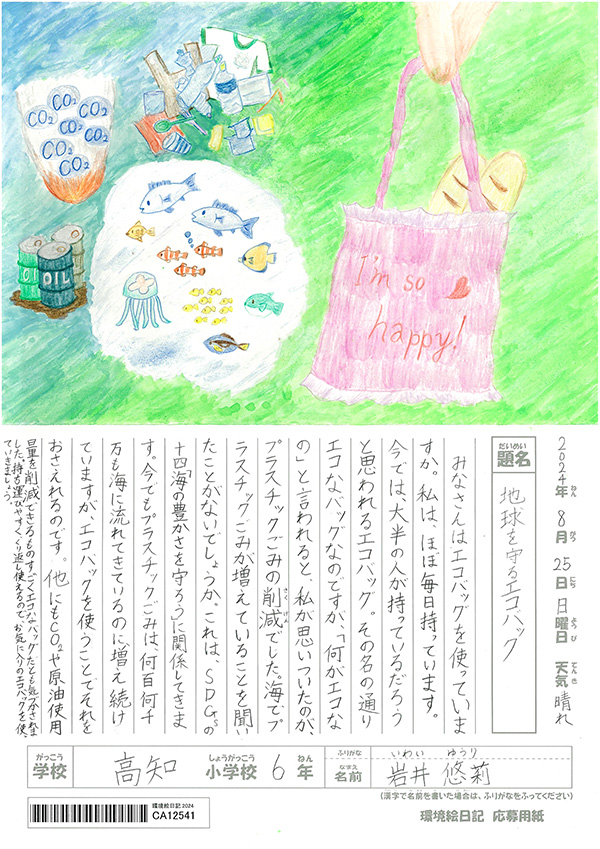 CO2
CO2
CO2
CO2
CO2
CO2
OIL
OIL
I'm so
happy!
2024年 8月 25日 日曜日 天気 晴れ
ねん がつ にち ようび てんき
だいめい
題名
地球を守るエコバッグ
みなさんはエコバッグを使っていま
すか。私は、ほぼ毎日持っています。
今では、大半の人が持っているだろう
と思われるエコバッグ。その名の通り
エコなバッグなのですが、「何がエコな
の」と言われると、私が思いついたのが、
プラスチックごみの削減でした。海でプ
さくげん
ラスチックごみが増えていることを聞い
たことがないでしょうか。これは、SDGsの
十四「海の豊かさを守ろう」に関係してきま
す。今でもプラスチックごみは、何百何千
万も海に流れてきているのに増え続け
ていますが、エコバッグを使うことでそれを
おさえれるのです。他にもCO2や原油使用
量を削減できるものすごくエコなバッグだとも気づかされま
した。持ち運びやすく、くり返し使えるので、お気に入りのエコバッグを使っ
ていきましょう。
がっこう
学校
高知
しょうがっこう
小学校
6
ねん
年
ふりがな
いわい ゆうり
なまえ
名前
岩井 悠莉
(漢字で名前を書いた場合は、ふりがなをふってください)
環境絵日記2024
CA12541
環境絵日記 応募用紙